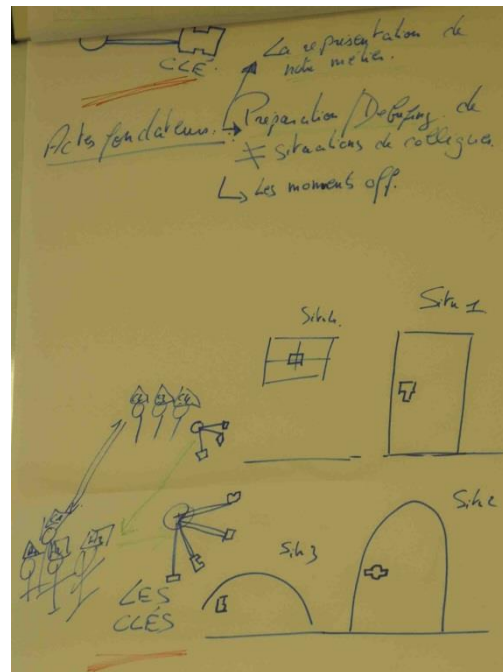 CLÉ.
La représentation de
notre métier.
Actes fondateurs.
Préparation / Debriefing de
≠ situations de collègues.
Les moments off.
Situ 4.
Situ 1
Situ 2
Situ 3
LES
CLÉS